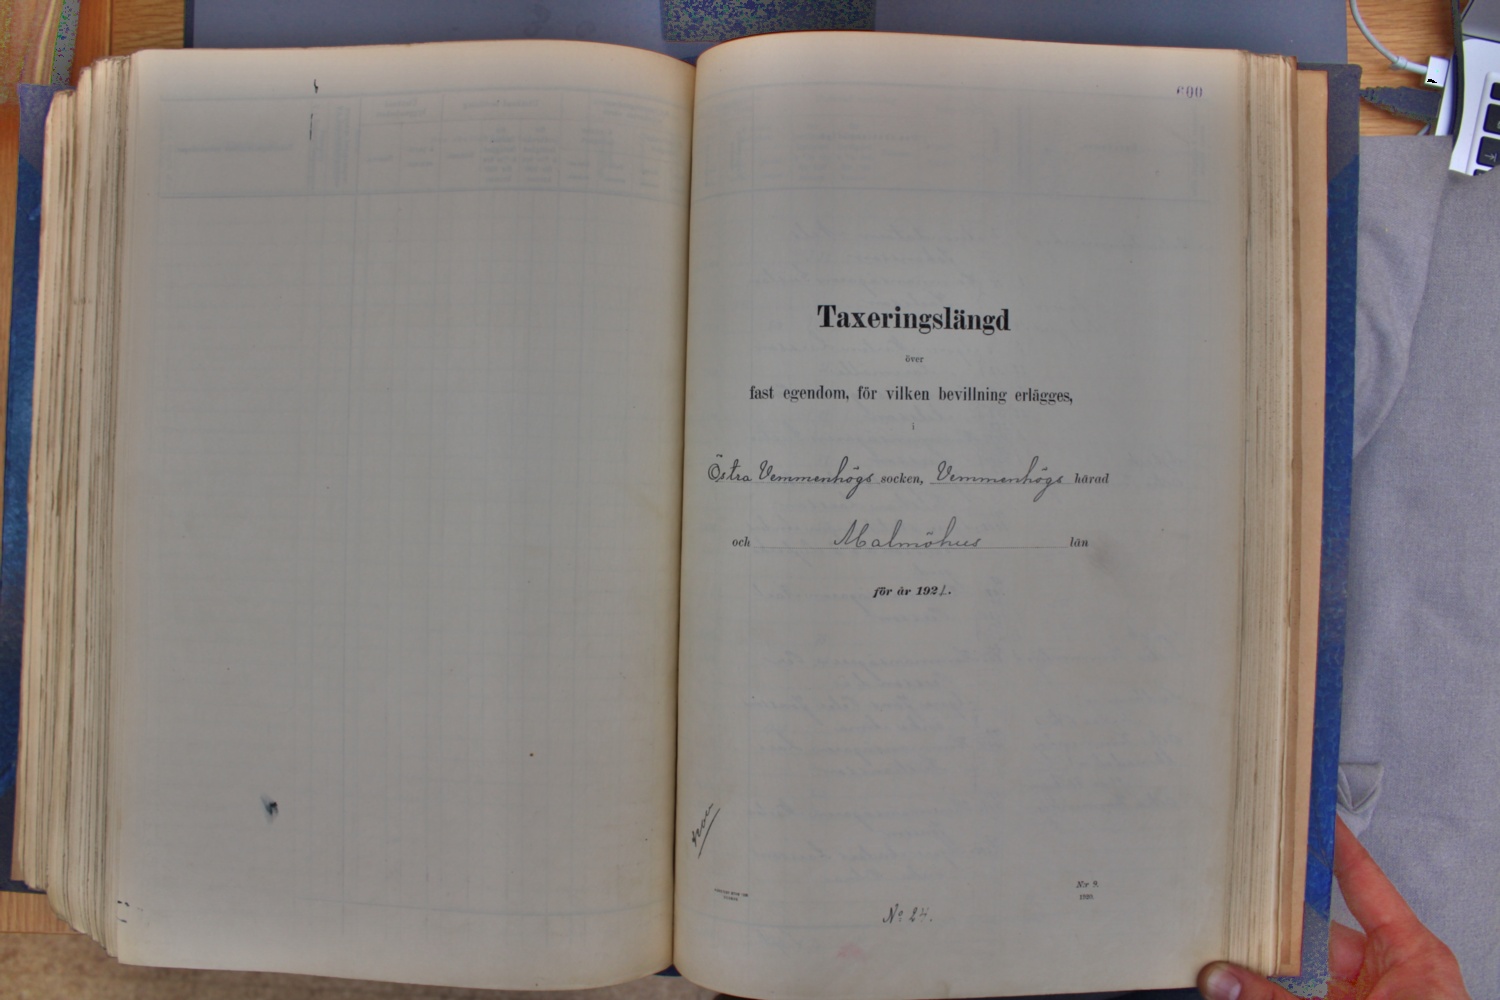 600
Taxeringslängd
över
fast egendom, för vilken bevillning erlägges,
i
Östra Vemmenhögs socken, Vemmenhögs härad
och Malmöhus län
för år 1921.
N:r 9.
1920
No 24.